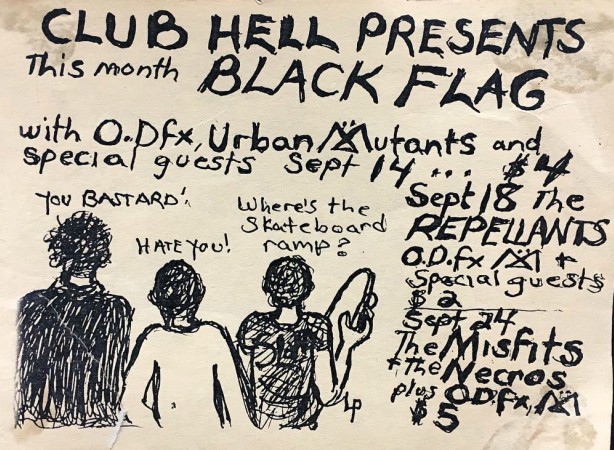 CLUB HELL PRESENTS
This month BLACK FLAG
with O.Dfx, Urban Mutants and
special guests Sept 14 ... $4
YOU BASTARD!
HATE YOU!
Where's the
Skateboard
ramp?
LP
Sept 18 The
REPELLANTS
O.D.fx M +
Special guests
$2
Sept 24
The Misfits
+ the Necros
plus O.D.fx, M
$5